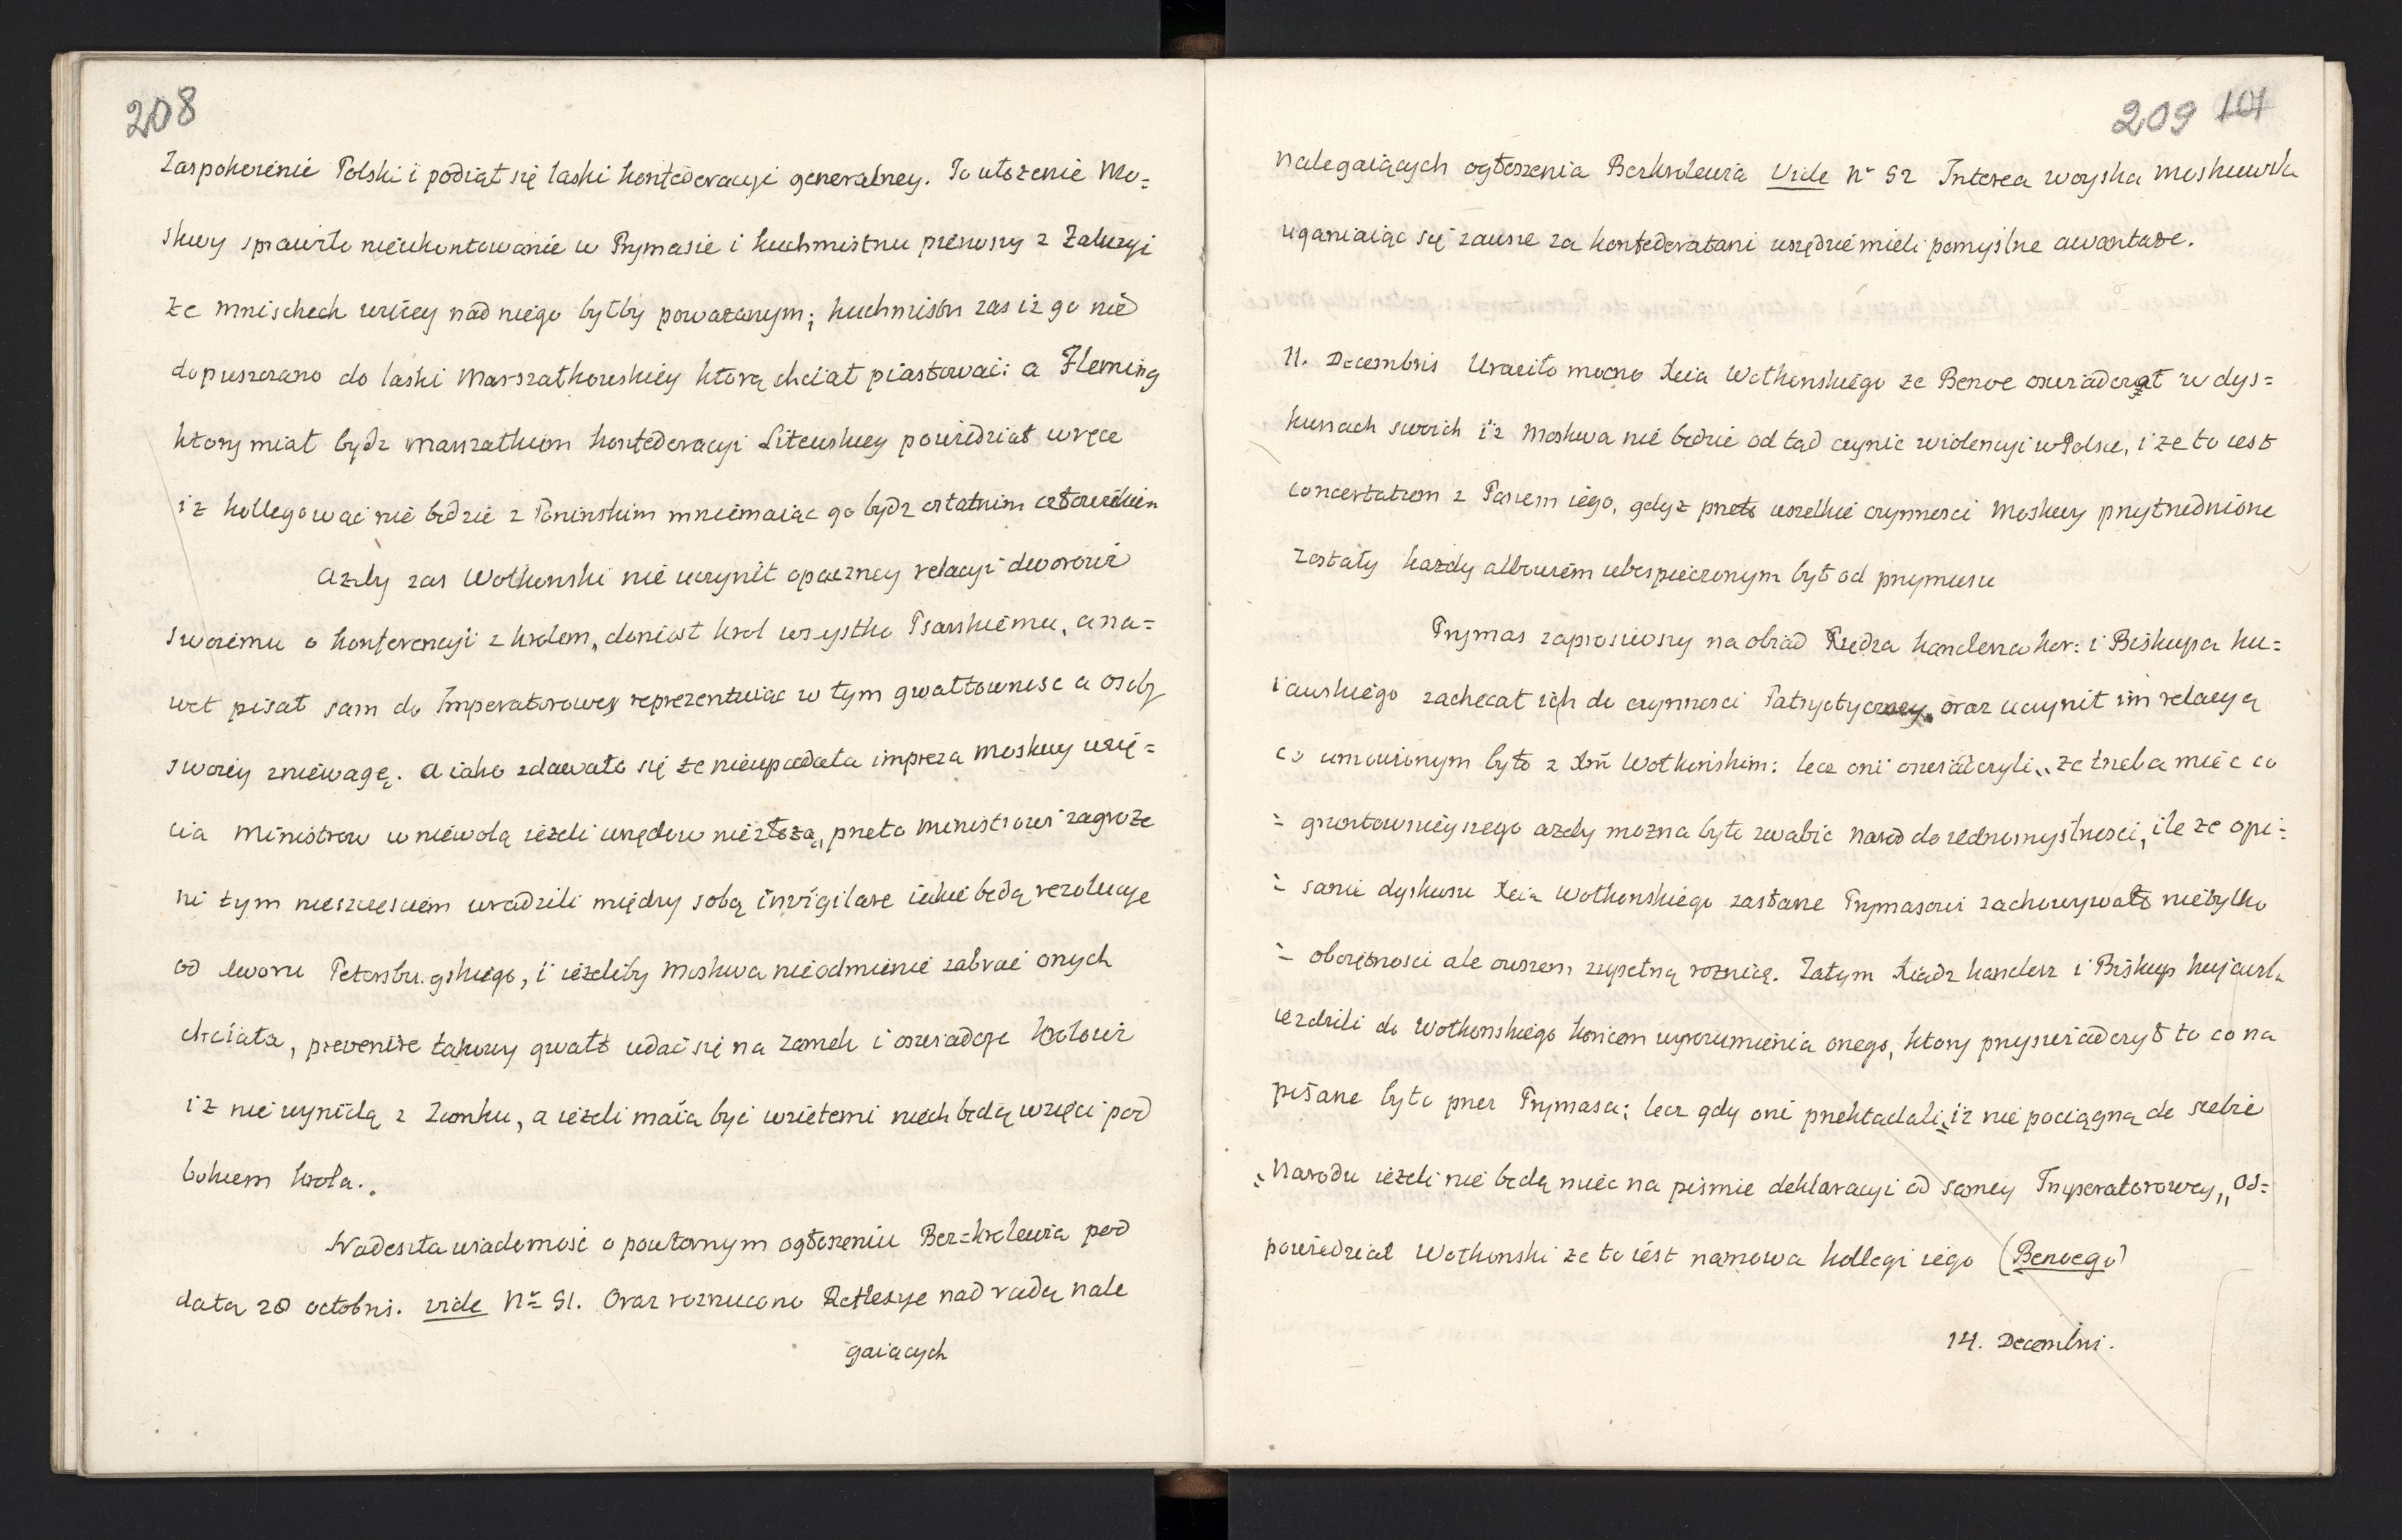 208
Zaspokoienie Polski i podiął się laski konfederacyi generalney. To ułożenie Mo=
skwy sprawiło nieukontowanie w Prymasie i kuchmistrzu pierwszy z Zaluzyi
że Mnischech więcey nad niego byłby poważanym; kuchmistrz zas iż go nie
dopuszczono do laski Marszałkowskiey ktorą chciał piastować: a Fleming
ktory miał bydz marszałkiem konfederacyi Litewskiey powiedział wręce
iż kollegować nie będzie z Ponińskim mniemaiąc go bydz ostatnim człowiekiem
Azeby zas Wołkonski nie uczynił opaczney relacyi dworowi
swoiemu o konferencyi z krolem, doniosł krol wszystko Psarskiemu, a na=
wet pisał sam do Imperatorowey reprezentuiąc w tym gwałtownosc a osoby
swoiey zniewagę. A iako zdawało się że nieupadała impreza Moskwy wzię=
cia Ministrow w niewolą ieżeli urzędow niezłożą, przeto ministrowi zagroże
ni tym nieszczęsciem uradzili między sobą invigilare iakie będą rezolucye
od dworu Petersbu.gskiego, i ieżeliby Moskwa nieodmienie zabrać onych
chciała, prevenire takowy gwałt udać się na Zamek i oswiadczę krolowi
iż nie wynidą z Zamku, a ieżeli maią być wzietemi niech będą wzięci pod
bokiem krola.
Nadeszła wiadomość o powtornym ogłoszeniu Bez=krolewia pod
datą 28 octobris. vide Nr 51. Oraz roznucono Reflexye nad radą nale
gaiących
209 101
Nalegaiących ogłoszenia Bezkrolewia Vide Nr 52 Interea woyska moskiewska
uganiaiąc się zawsze za konfederatami wszędzie mieli pomyslne awantaże.
11. Decembris Uraziło mocno Xcia Wołkonskiego że Benoe oswiadczał w dys=
kursach swoich iż Moskwa nie będzie od tąd czynić wiolencyi w Polsce, i że to iest
concertatum z Panem iego, gdyż przeto wszelkie czynnosci Moskwy przytrudnione
zostały każdy albowiem ubespieczonym był od przymusu
Prymas zaprosiwszy na obiad Xiędza kanclerza kor: i Biskupa ku=
iawskiego zachecał ich do czynnosci Patryotyczney, oraz uczynił im relacyą
co umowionym było z Xm Wołkonskim: lecz oni oswiatczyli„ że trzeba miec co
= gruntownieyszego azeby można było zwabic narod do iednomyslnosci, ile że opi=
= sanie dyskursu Xcia Wołkonskiego zasłane Prymasowi zachowywało nietylko
= oboiętnosci ale owszem zupełną roznicę. Zatym Xiądz kanclerz i Biskup kujawski
ieździli do Wołkonskiego końcem wyrozumienia onego, ktory przyswiadczył to co na
pisane było przez Prymasa; lecz gdy oni przekładali„ iż nie pociągną do siebie
„ Narodu ieżeli nie będą miec na pismie deklaracyi od samey Imperatorowey„ od=
powiedział Wołkonski że to iest namowa kollegi iego (Benoego)
14. Decembri.